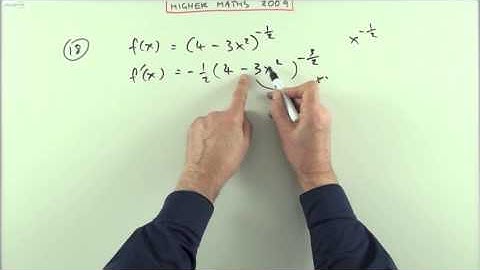 HIGHER MATHS 2009
(18) f(x) = (4 - 3x²)^{-1/2}
x^{-1/2}
f'(x) = -1/2 (4 - 3x²)^{-3/2}